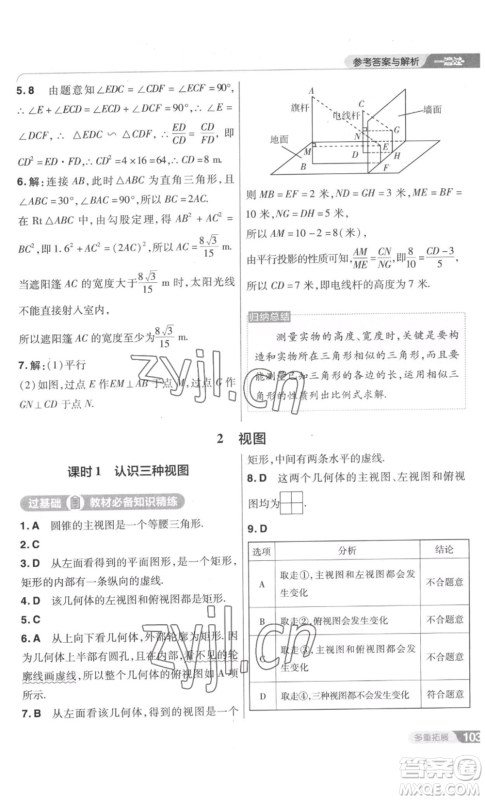 参考答案与解析 一遍过
5. 8 由题意知∠EDC = ∠CDF = ∠ECF = 90°,
∴ ∠E + ∠ECD = ∠ECD + ∠DCF = 90°, ∴ ∠E =
∠DCF, ∴ △EDC ∽ △CDF, ∴ ED/CD = CD/FD, 即
CD² = ED·FD, ∴ CD² = 4×16 = 64, ∴ CD = 8 m.
6. 解: 连接 AB, 此时 △ABC 为直角三角形, 且
∠ACB = 90°, ∠BAC = 30°, 所以 AB = 2AC.
在 Rt△ABC 中, 由勾股定理, 得 AB² = AC² +
BC², 即 1.6² + AC² = (2AC)², 所以 AC = 8√3/15 m.
当遮阳篷 AC 的宽度为 8√3/15 m 时, 太阳光线
不能直接射入室内,
所以遮阳篷 AC 的宽度至少为 8√3/15 m.
7. 解: (1)平行
(2)如图, 过点 E 作 EM⊥AB 于点 M, 过点 G 作
GN⊥CD 于点 N.
A
旗杆
电线杆
C
墙面
地面
M
N
G
D
H
E
B
F
则 MB = EF = 2 米, ND = GH = 3 米, ME = BF =
10 米, NG = DH = 5 米.
所以 AM = 10 - 2 = 8(米),
由平行投影的性质可知, AM/ME = CN/NG, 即 8/10 = (CD-3)/5
所以 CD = 7 米, 即电线杆的高度为 7 米.
归纳总结
测量实物的高度、宽度时, 关键是要构
造和实物所在三角形相似的三角形, 而且要
能测量已知三角形的各条线段的长, 运用相
似三角形的性质列出比例式求解.
2 视图
课时1 认识三种视图
过基础 教材必备知识精练
1. A 圆锥的主视图是一个等腰三角形.
2. C
3. D 从左面看得到的平面图形, 是一个矩形,
矩形的内部有一条纵向的虚线.
4. D 该几何体的左视图和俯视图都是矩形.
5. C
6. A 从左面看几何体, 外部轮廓为矩形, 因
为几何体上半部有圆孔, 且从左面看不见的轮
廓线画虚线, 所以该几何体的左视图如 A 项
所示.
7. B 从左面看该几何体, 看到的图形是一个
矩形, 中间有两条水平的虚线.
8. D 这两个几何体的主视图、左视图和俯视
图均为 .
9. D
选项 分析 结论
A 取走①, 主视图和左视图都会发生变化 不合题意
B 取走②, 俯视图会发生变化 不合题意
C 取走③, 主视图和俯视图都会发生变化 不合题意
D 取走④, 三种视图都不会发生变化 符合题意
多重拓展 103
zyjl.cn
zyjl.cn
答案圈